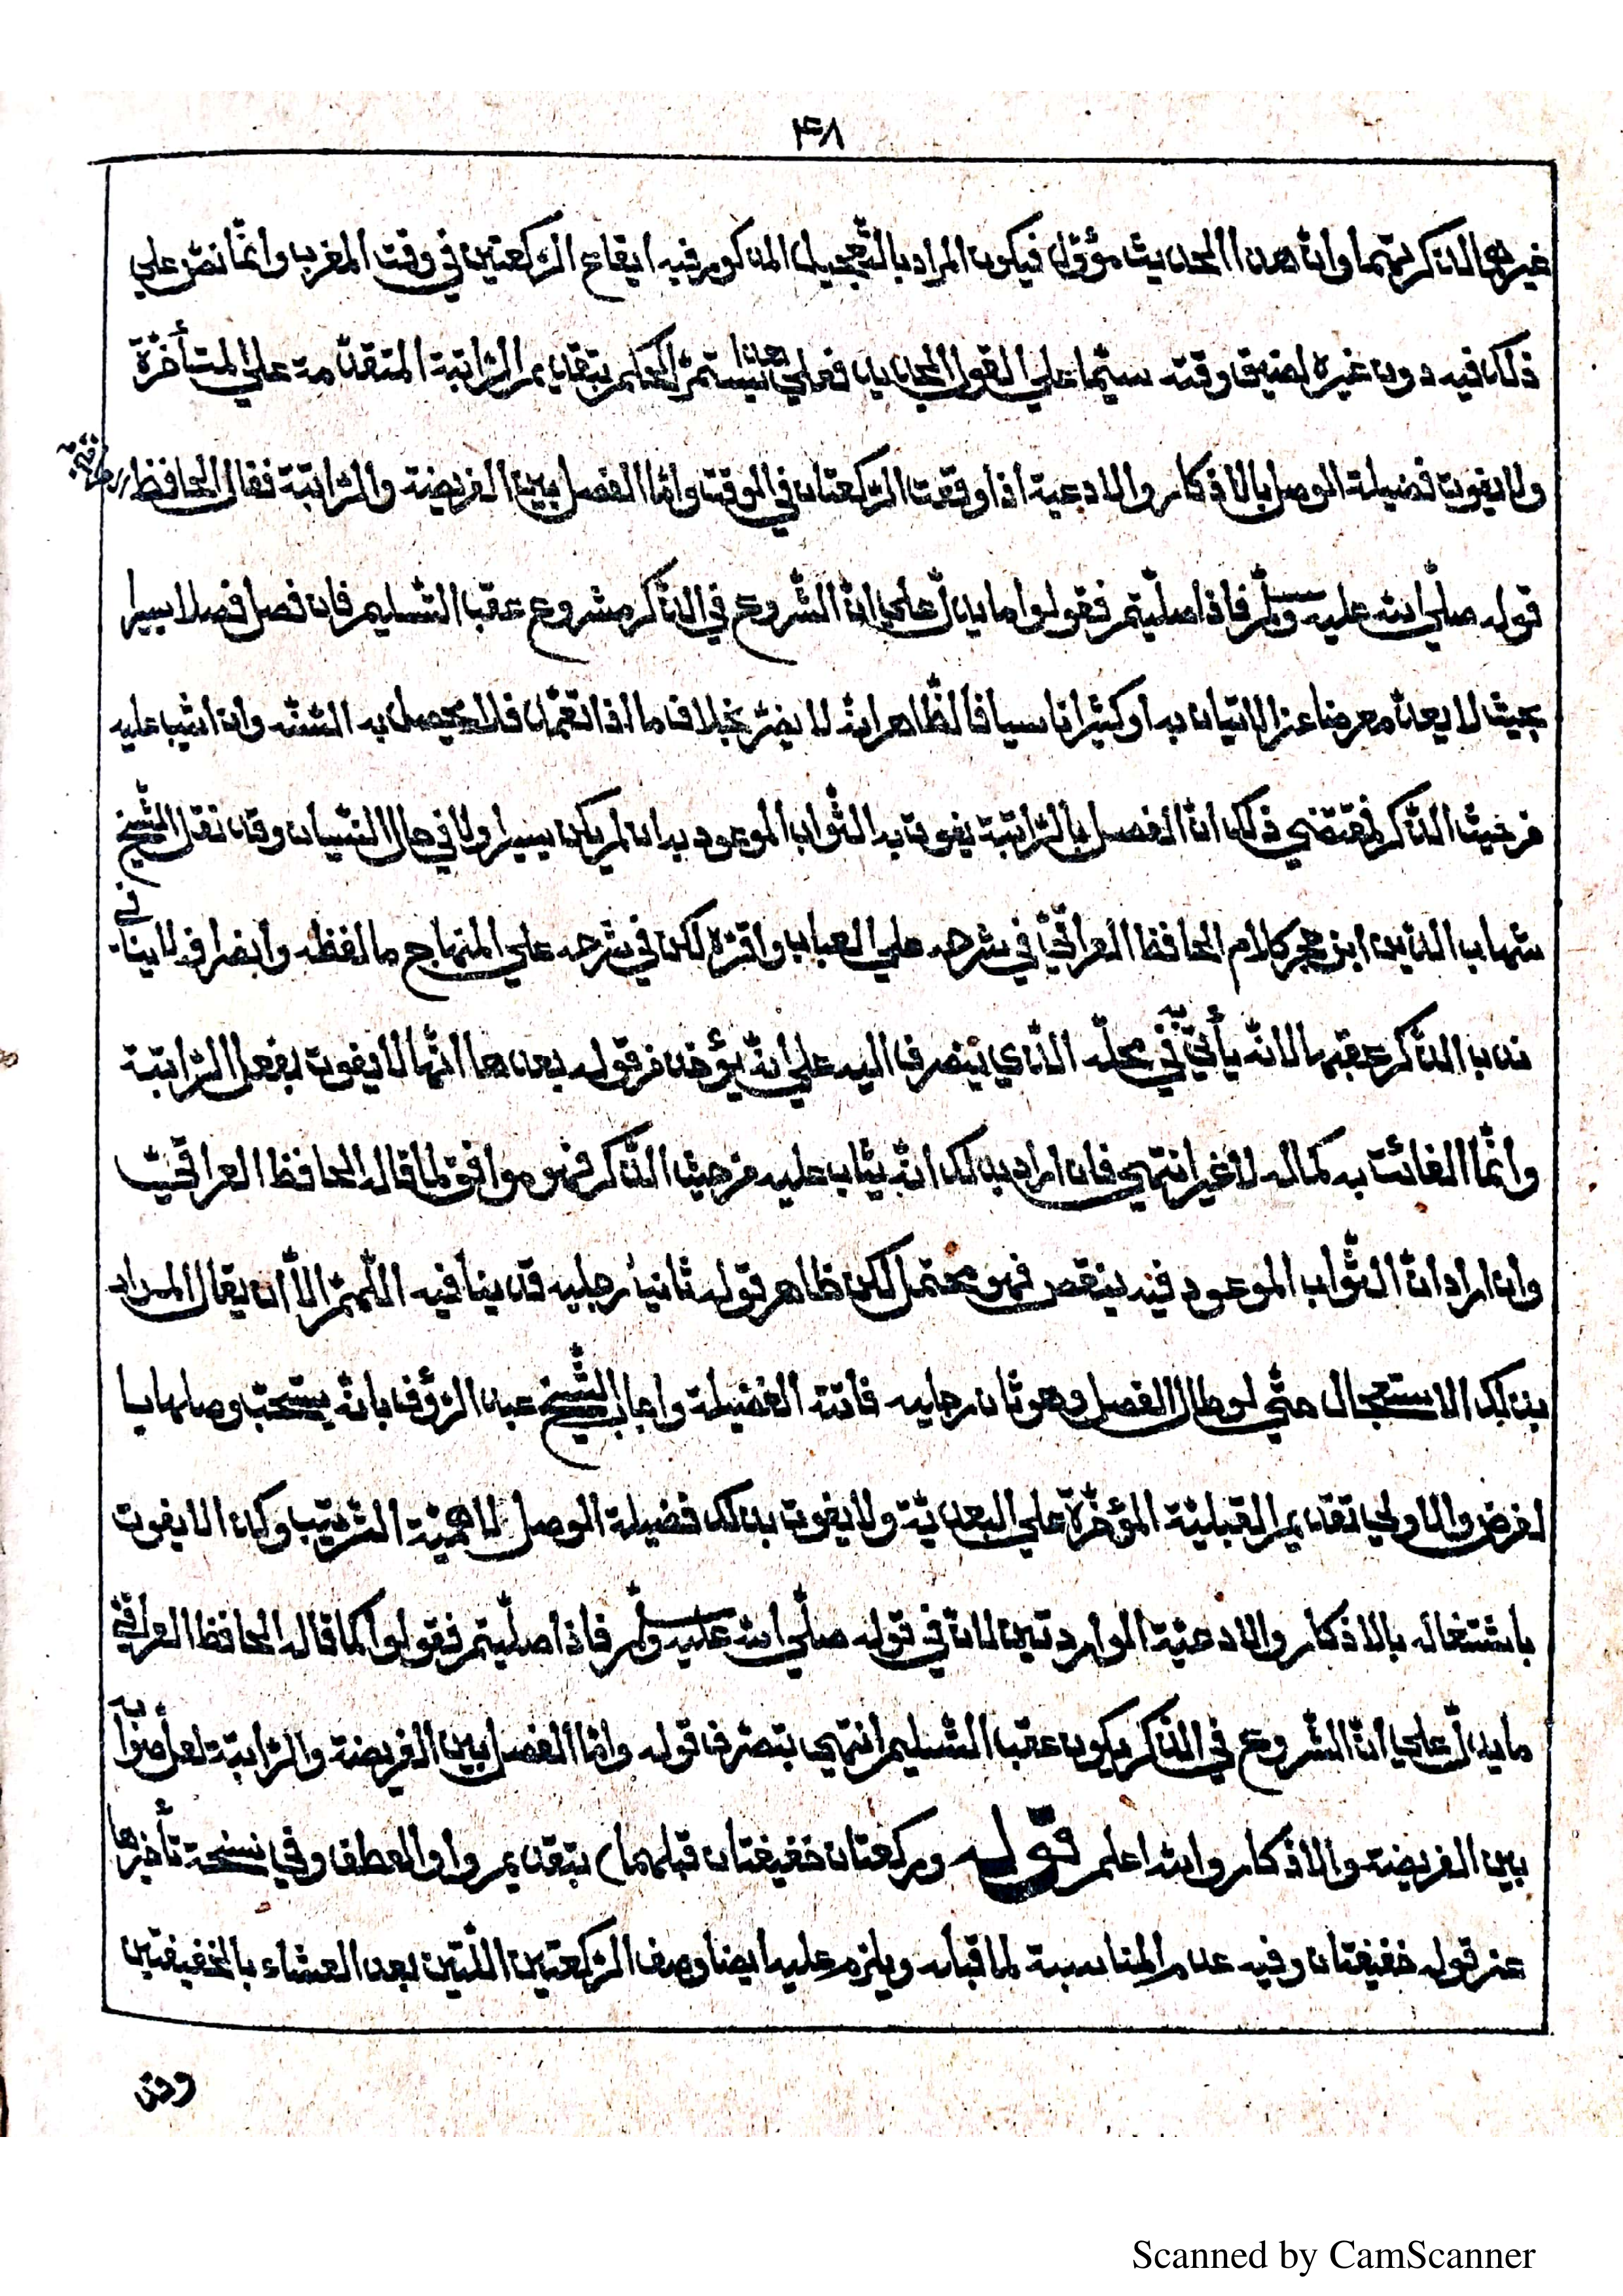 ٣٤٨
غيرهما لذكرتهما وان هذا الحديث مؤوّل فيكون المراد بالتّعجيل المذكور فيه ايقاع الرّكعتين في وقت المغرب وانّما نصّ علي
ذلك فيه دون غيره لضيق وقته سيّما علي القول الجديد فعلي هذا يستمرّ الحكم بتقديم الرّاتبة المتقدّمة علي المتأخّرة
ولا يفوت فضيلة الوصل بالاذكار والادعية اذا وقعت الرّكعتان في الوقت وامّا الفصل بين الفريضة والرّاتبة فقال الحافظ
قوله صلّي الله عليه وسلّم فاذا صلّيتم فقولوا ما يدلّ علي انّ الشّروع في الذّكر مشروع عقب التّسليم فان فصل فصلا يسيرا
بحيث لا يعدّ معرضا عن الاتيان به او كثيرا ناسيا فالظّاهر انّه لا يضرّ بخلاف ما اذا تعمّد فلا يحصل به السّنّة وان اثيب عليه
من حيث الذّكر فمقتضي ذلك انّ الفصل بالرّاتبة يفوت به الثّواب الموعود به ان لم يكن يسيرا ولا في حال النّسيان وقد نقل الشّيخ
شهاب الدّين ابن حجر كلام الحافظ العراقيّ في شرحه علي العباب واقرّه لكن في شرحه علي المنهاج ما لفظه وايضا فلا ينافي
ندب الذّكر عقبها لانّه يأتي به في محلّه الذي ينصرف اليه علي انّه يؤخذ من قوله بعدها انّها لا يفوت بفعل الرّاتبة
وانّما الفائت به كماله لا غير انتهي فان اراد بذلك انّه يثاب عليه من حيث الذّكر فهو موافق لما قاله الحافظ العراقيّ
وان اراد انّ الثّواب الموعود فيه ينقص فهو محتمل لكن ظاهر قوله ثانيا رجليه قد ينافيه اللّهمّ الاّ ان يقال المراد
بذلك الاستعجال حتّي لو طال الفصل وهو ثان رجليه فاتته الفضيلة واجاب الشّيخ عبد الرّؤف بانّه يستحبّ وصلهما با
لفرض والاولي تقديم القبليّة المؤخّرة علي البعديّة ولا يفوت بذلك فضيلة الوصل لاهمّيّة التّرتيب وكذا لا يفوت
باشتغاله بالاذكار والادعيّة الواردتين لانّ في قوله صلّي الله عليه وسلّم فاذا صلّيتم فقولوا كما قاله الحافظ العراقيّ
ما يدلّ علي انّ الشّروع في الذّكر يكون عقب التّسليم انتهي بتصرّف قوله وامّا الفصل بين الفريضة والرّاتبة لعل صوابه
بين الفريضة والاذكار والله اعلم قوله وركعتان خفيفتان قبلهما) بتقديم واو العطف وفي نسخة تأخيرها
عن قوله خفيفتان وفيه عدم المناسبة لما قبله ويلزم عليه ايضا وصف الرّكعتين اللّتين بعد العشاء بالخفيفتين
Scanned by CamScanner